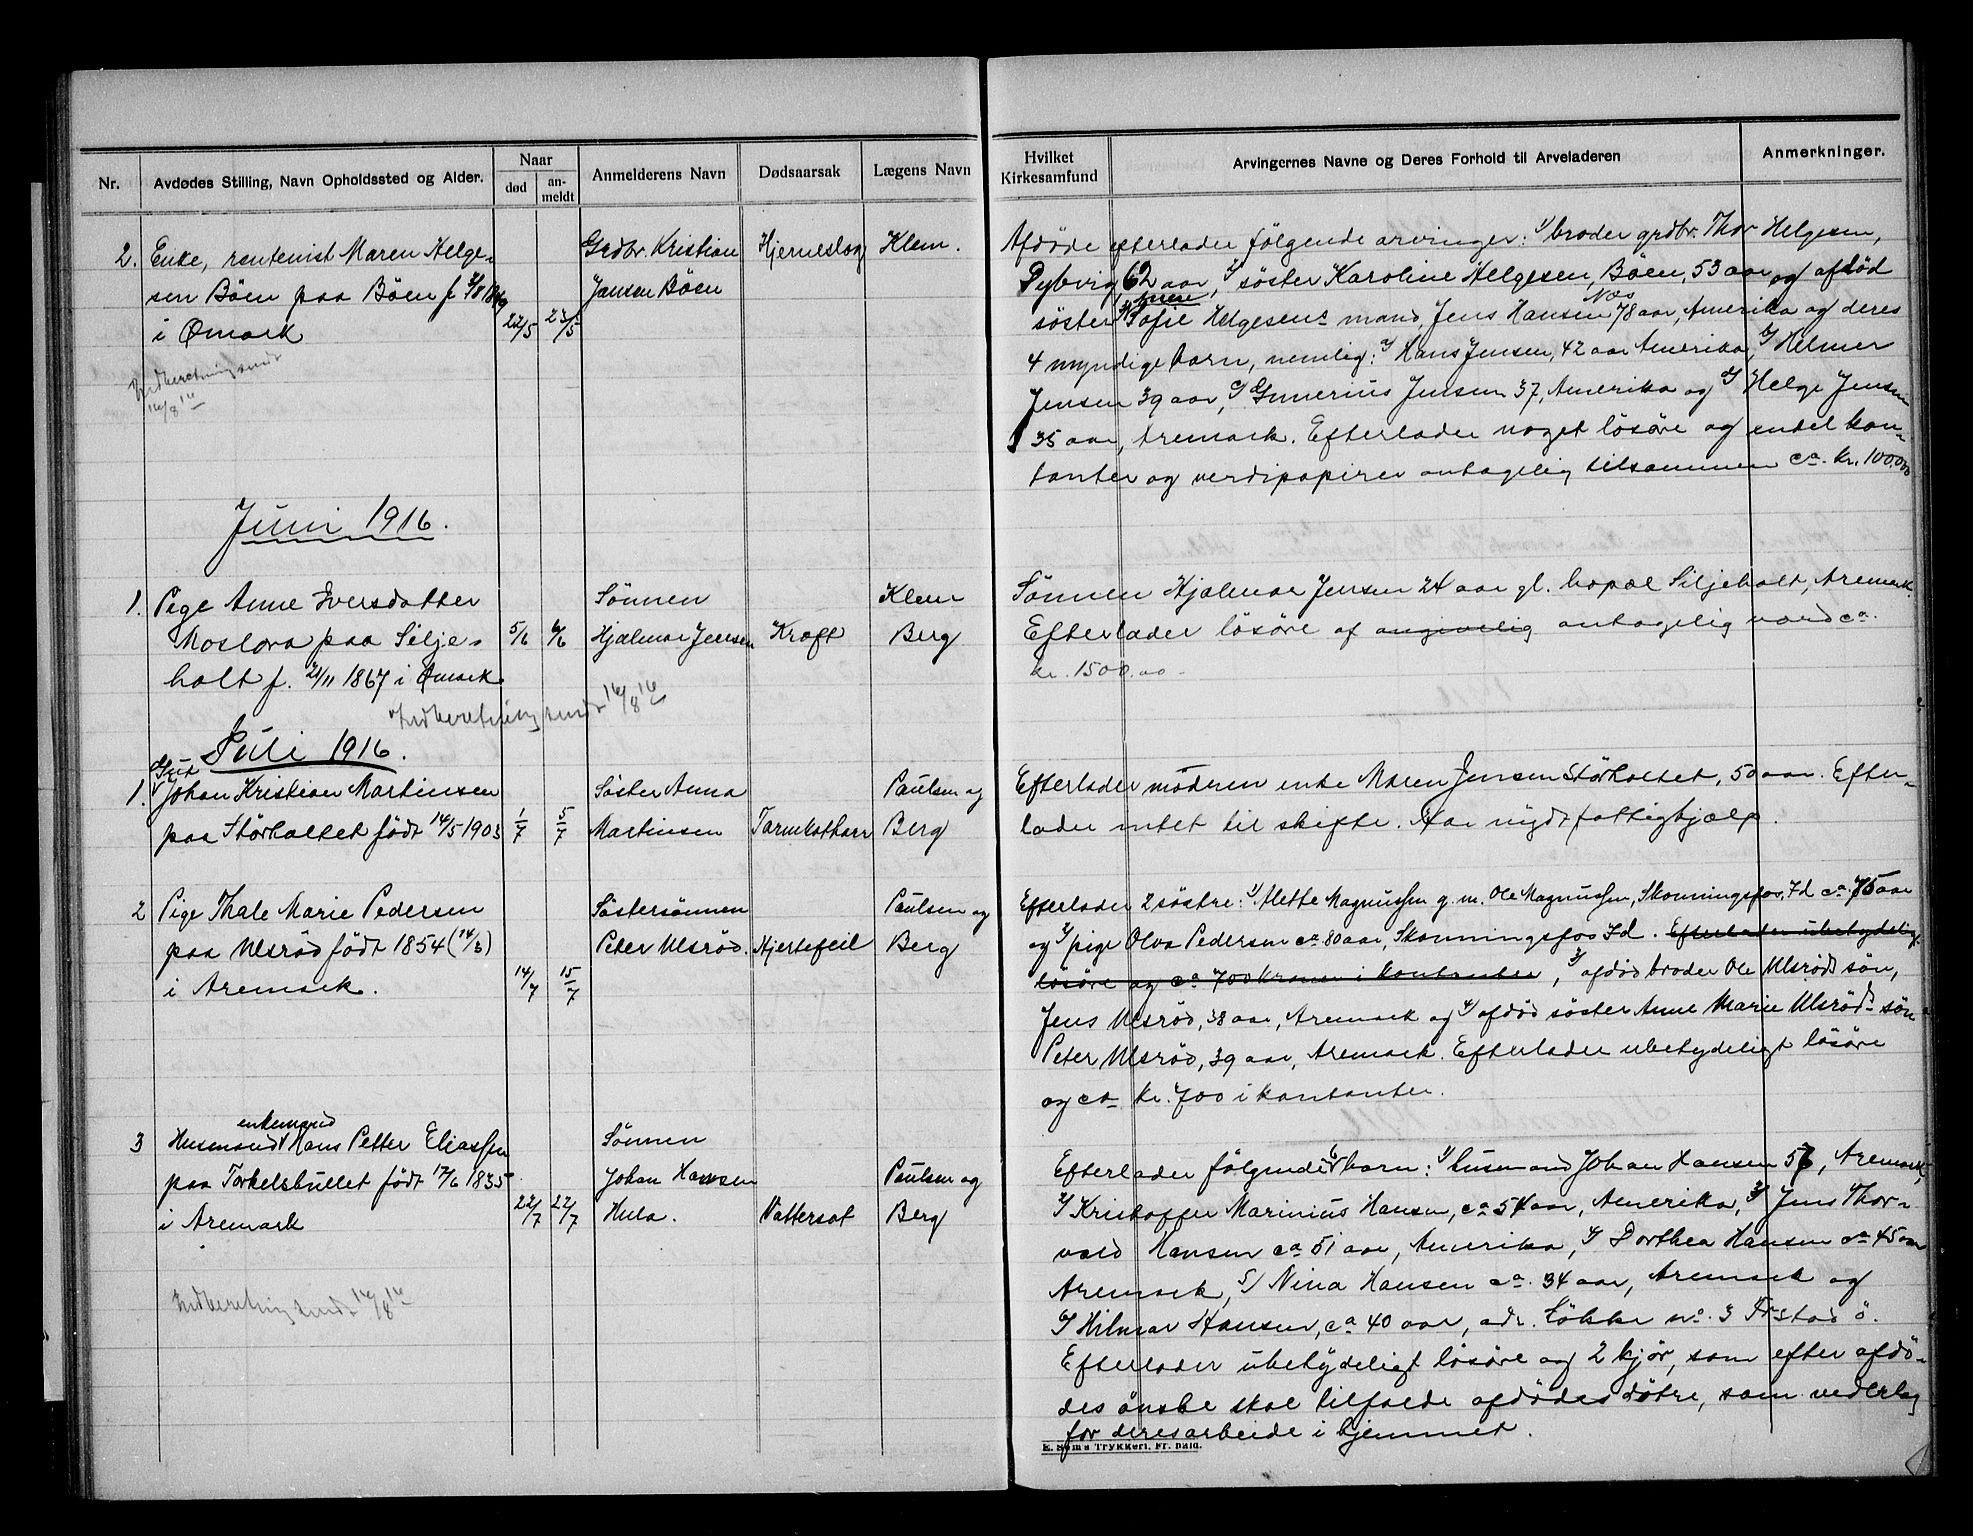 Nr.
Avdødes Stilling, Navn Opholdssted og Alder.
Naar
død
an-
meldt
Anmelderens Navn
Dødsaarsak
Lægens Navn
Hvilket
Kirkesamfund
Arvingernes Navne og Deres Forhold til Arveladeren
Anmerkninger.
2. Enke, rentenist Maren Helge-
sen Böen paa Böen f.
i Ømark
22/5 23/5
Grdbr. Kristian
Jansen Böen
Hjerneslag
Klem.
Indberetning sendt
16/8 16
Afdøde efterlader følgende arvinger: 1/ broder grdbr. Thor Helgesen,
Dybvig 62 aar, 2/ søster Karoline Helgesen, Böen, 53 aar og afdød
søster Sofie Helgesens mand, Jens Hansen Næs 78 aar, Amerika og deres
4 myndige barn, nemlig: Hans Jensen, 42 aar Amerika, Helmer
Jensen 39 aar, Gunerius Jensen 37, Amerika og Helge Jensen
35 aar, Aremark. Efterlader noget løsøre og endel kon-
tanter og verdipapirer antagelig tilsammen ca. kr. 100,000
Juni 1916.
1. Pige Anne Iversdatter
Moslora paa Silje-
holt f. 21/11 1867 i Ømark
5/6 6/6
Sønnen
Hjalmar Jensen
Kræft
Klem
Berg
Indberetning sendt 16/8 16
Sønnen Hjalmar Jensen 24 aar gl. bopæl Siljeholt, Aremark.
Efterlader løsøre af angivelig antagelig værd ca.
kr. 1500.00.
Juli 1916.
Gut
1. Johan Kristian Martinsen
paa Störholtet født 14/5 1903
1/7 5/7
Søster Anna
Martinsen
Tarmkatharr
Paulsen og
Berg
Efterlader moderen enke Maren Jensen Störholtet, 50 aar. Efter-
lader intet til skifte. Har nydt fattighjælp.
2 Pige Thale Marie Pedersen
paa Ulsrød født 1854 (14/3)
i Aremark.
14/7 15/7
Søstersønnen
Peter Ulsrød.
Hjertefeil
Paulsen og
Berg
Efterlader 2 søstre: 1/ Mette Magnussen g. m. Ole Magnussen, Skonningsfos, Id ca. 75 aar
og 2/ pige Olva Pedersen ca 80 aar, Skonningsfos Id. Efterlader ubetydelig
løsøre og ca 700 kroner i kontanter, 3/ afdød broder Ole Ulsrøds søn,
Jens Ulsrød, 38 aar, Aremark og 4/ afdød søster Anne Marie Ulsrøds søn
Peter Ulsrød, 39 aar, Aremark. Efterlader ubetydeligt løsøre
og ca kr. 700 i kontanter.
enkemand
3 Husmand Hans Petter Eliassen
paa Torkelsbullet født 17/6 1835
i Aremark
22/7 22/7
Sønnen
Johan Hansen
Hula.
Vattersot
Paulsen og
Berg
Indberetning sendt 16/8 16
Efterlader følgende 6 barn: 1/ husmand Johan Hansen 56, Aremark,
2/ Kristoffer Marinius Hansen, ca 54 aar, Amerika, 3/ Jens Thor-
vald Hansen ca 51 aar, Amerika, 4/ Dorthea Hansen ca 45 aar
Aremark, 5/ Nina Hansen ca. 34 aar, Aremark og
6/ Hilmar Hansen, ca 40 aar, adr. Løkke no. 3 Frstad ö.
Efterlader ubetydeligt løsøre og 2 kjør, som efter afdø-
des ønske skal tilfalde afdødes døtre, som vederlag
for deres arbeide i hjemmet.
E. Sems Trykkeri, Fr. hald.